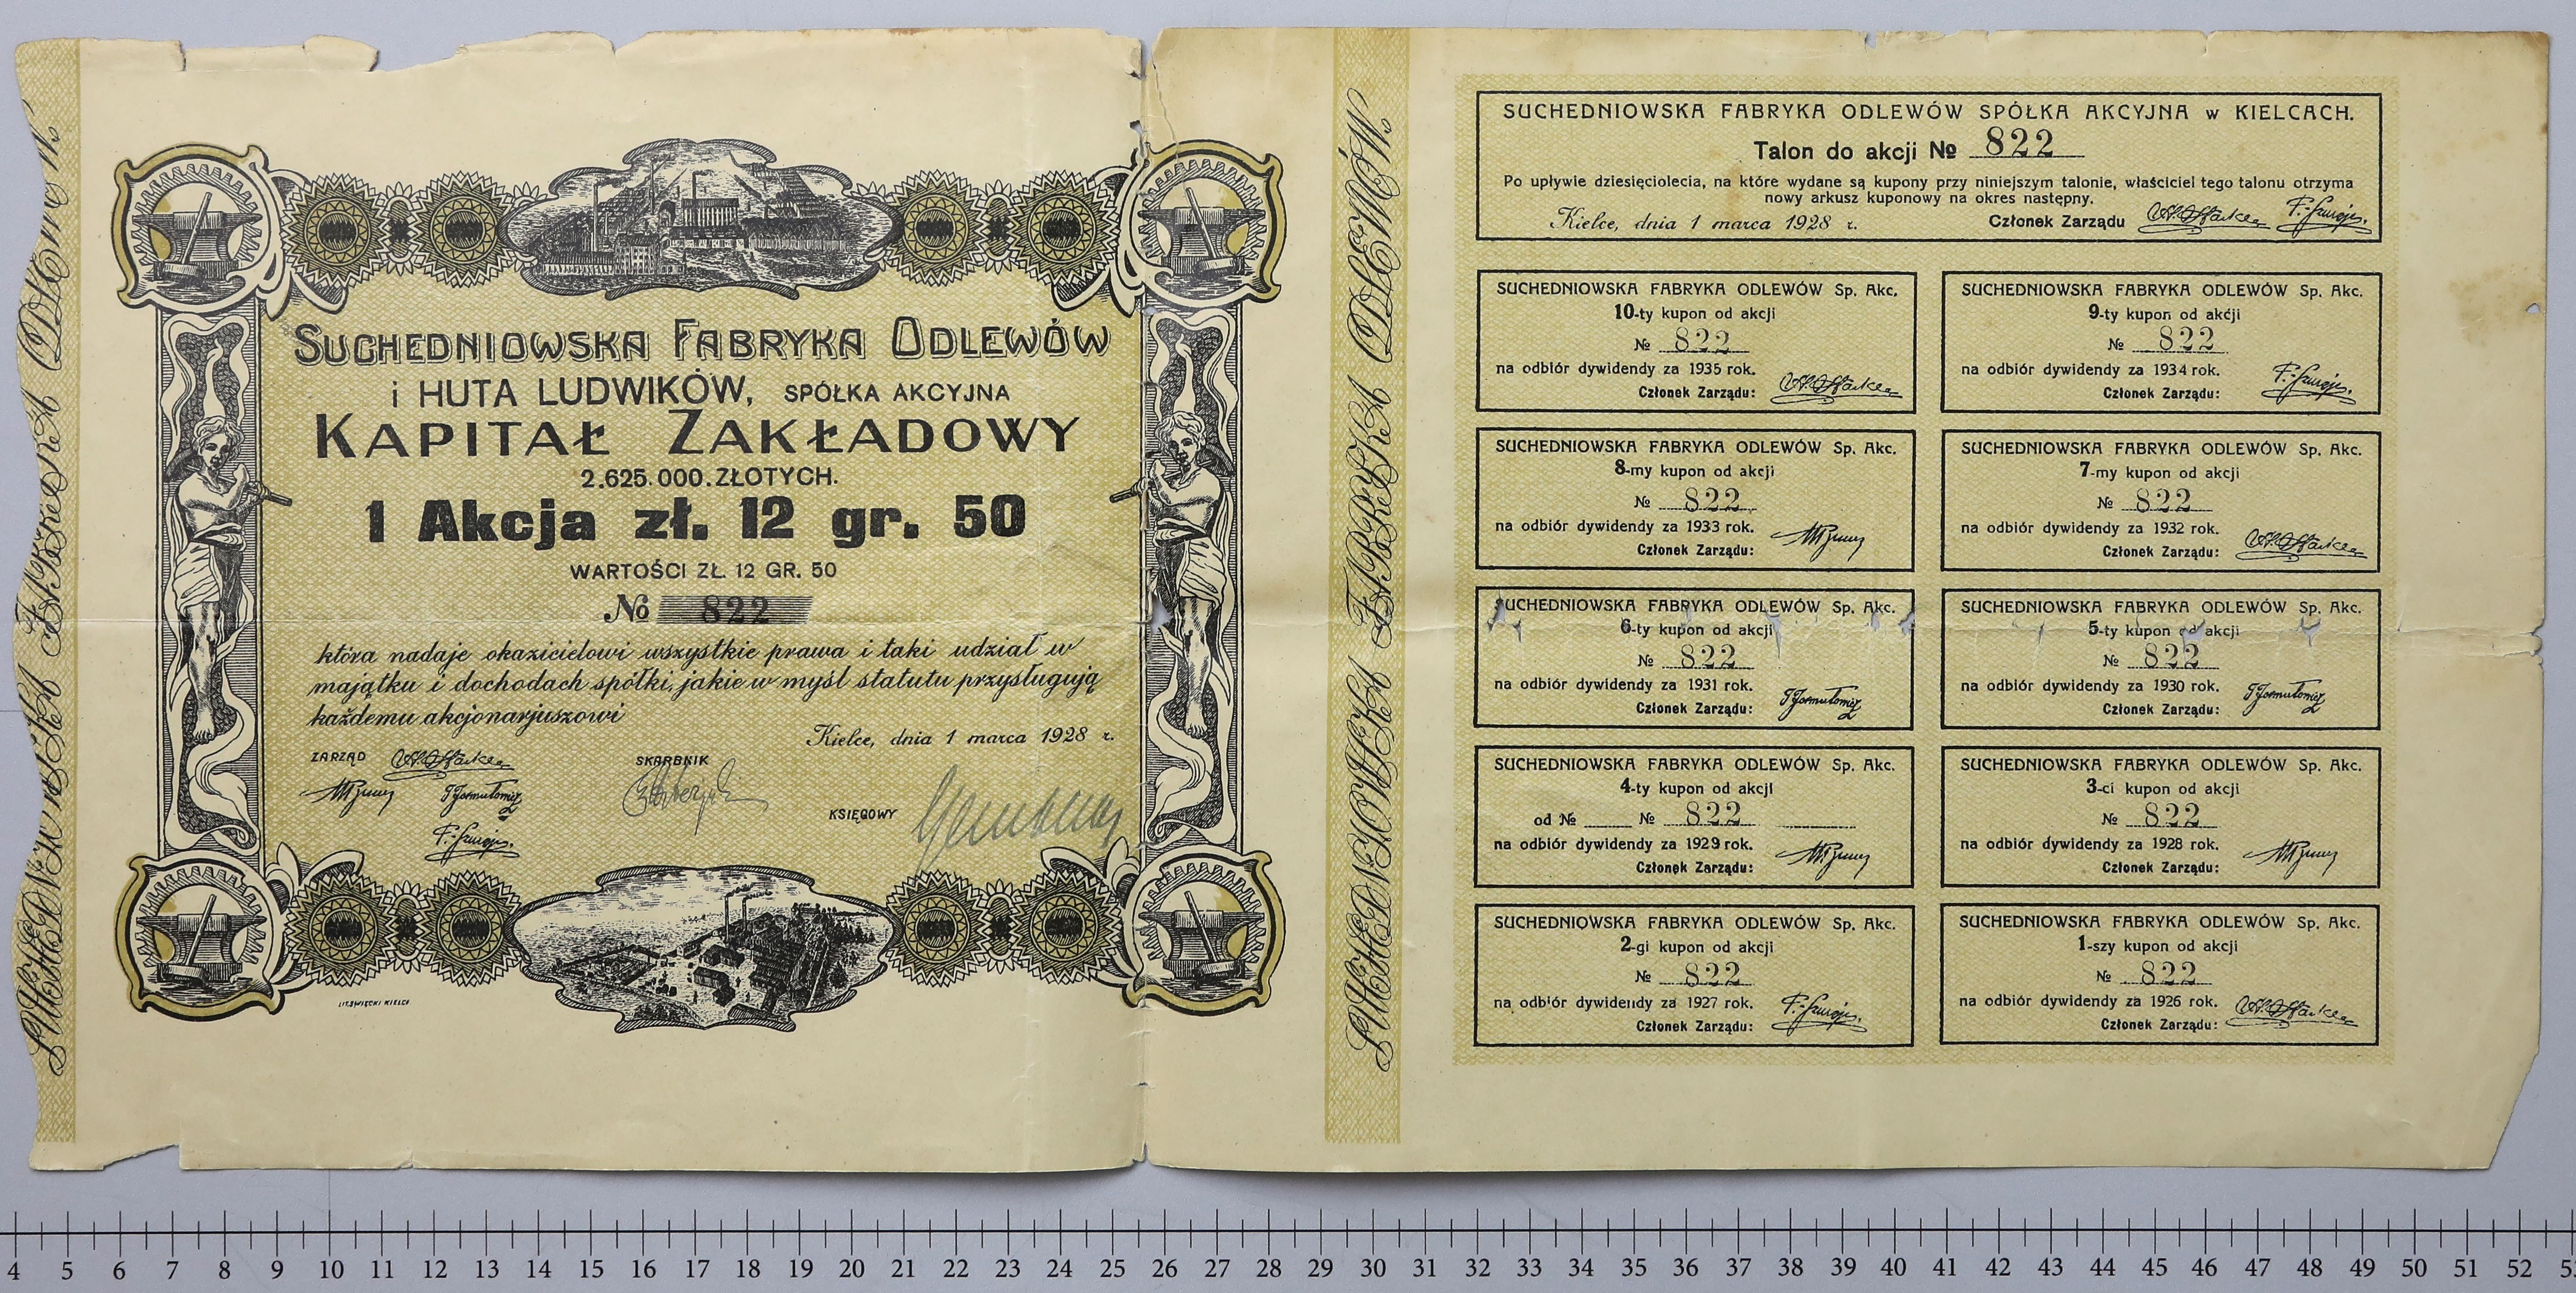 SUCHEDNIOWSKA FABRYKA ODLEWÓW
i HUTA LUDWIKÓW, SPÓŁKA AKCYJNA
KAPITAŁ ZAKŁADOWY
2.625.000.ZŁOTYCH.
1 Akcja zł. 12 gr. 50
WARTOŚCI ZŁ. 12 GR. 50
№ 822
która nadaje okazicielowi wszystkie prawa i taki udział w
majątku i dochodach spółki, jakie w myśl statutu przysługują
każdemu akcjonarjuszowi
Kielce, dnia 1 marca 1928 r.
ZARZĄD
SKARBNIK
KSIĘGOWY
LIT. ŚWIĘCKI KIELCE
SUCHEDNIOWSKA FABRYKA ODLEWÓW.
SUCHEDNIOWSKA FABRYKA ODLEWÓW SPÓŁKA AKCYJNA w KIELCACH.
Talon do akcji № 822
Po upływie dziesięciolecia, na które wydane są kupony przy niniejszym talonie, właściciel tego talonu otrzyma
nowy arkusz kuponowy na okres następny.
Kielce, dnia 1 marca 1928 r. Członek Zarządu
SUCHEDNIOWSKA FABRYKA ODLEWÓW Sp. Akc.
10-ty kupon od akcji
№ 822
na odbiór dywidendy za 1935 rok.
Członek Zarządu:
SUCHEDNIOWSKA FABRYKA ODLEWÓW Sp. Akc.
9-ty kupon od akcji
№ 822
na odbiór dywidendy za 1934 rok.
Członek Zarządu:
SUCHEDNIOWSKA FABRYKA ODLEWÓW Sp. Akc.
8-my kupon od akcji
№ 822
na odbiór dywidendy za 1933 rok.
Członek Zarządu:
SUCHEDNIOWSKA FABRYKA ODLEWÓW Sp. Akc.
7-my kupon od akcji
№ 822
na odbiór dywidendy za 1932 rok.
Członek Zarządu:
SUCHEDNIOWSKA FABRYKA ODLEWÓW Sp. Akc.
6-ty kupon od akcji
№ 822
na odbiór dywidendy za 1931 rok.
Członek Zarządu:
SUCHEDNIOWSKA FABRYKA ODLEWÓW Sp. Akc.
5-ty kupon od akcji
№ 822
na odbiór dywidendy za 1930 rok.
Członek Zarządu:
SUCHEDNIOWSKA FABRYKA ODLEWÓW Sp. Akc.
4-ty kupon od akcji
od № № 822
na odbiór dywidendy za 1929 rok.
Członek Zarządu:
SUCHEDNIOWSKA FABRYKA ODLEWÓW Sp. Akc.
3-ci kupon od akcji
№ 822
na odbiór dywidendy za 1928 rok.
Członek Zarządu:
SUCHEDNIOWSKA FABRYKA ODLEWÓW Sp. Akc.
2-gi kupon od akcji
№ 822
na odbiór dywidendy za 1927 rok.
Członek Zarządu:
SUCHEDNIOWSKA FABRYKA ODLEWÓW Sp. Akc.
1-szy kupon od akcji
№ 822
na odbiór dywidendy za 1926 rok.
Członek Zarządu:
4 5 6 7 8 9 10 11 12 13 14 15 16 17 18 19 20 21 22 23 24 25 26 27 28 29 30 31 32 33 34 35 36 37 38 39 40 41 42 43 44 45 46 47 48 49 50 51 52